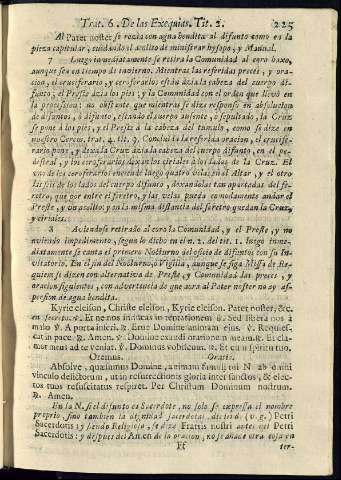 Trat. 6. De las Exequias. Tit. 2. 225
Al Pater noster se rozia con agua bendita al difunto como en la
pieza capitular, cuidando el acolito de ministrar hysopo, y Manual.
7 Luego inmediatamente se retira la Comunidad al coro baxo,
aunque sea en tiempo de invierno. Mientras las referidas preces, y ora-
cion, el cruciferario, y ceroferarios están àzia la cabeza del cuerpo di-
funto; el Preste àzia los pies; y la Comunidad con el orden que llevò en
la procession: no obstante que mientras se dize responso en absolucion
de difuntos, ò difunto, estando el cuerpo ausente, ò sepultado, la Cruz
se pone à los pies, y el Preste à la cabeza del tumulo, como se dize en
nuestro Cerem. trat. 4. tit. 9. Concluida la referida oracion, el crucife-
rario pone, y dexa la Cruz àzia la cabeza del cuerpo difunto, en el pe-
destral, y los ceroferarios dexan los ciriales à los lados de la Cruz. El
uno de los ceroferarios enciende luego quatro velas en el Altar, y el otro
las seis de los lados del cuerpo difunto, dexandolas tan apartadas del fe-
retro, que por entre el feretro, y las velas pueda comodamente andar el
Preste, y un acolito; y en la misma distancia del feretro quedan la Cruz,
y ciriales.
8 Aviendose retirado al coro la Comunidad, y el Preste, y no
aviendo impedimento, segun lo dicho en el n. 2. del tit. 1. luego inme-
diatamente se canta el primero Nocturno del oficio de difuntos con su In-
vitatorio. En el fin del Nocturno, ò Vigilia, aunque se siga Missa de Re-
quiem se dizen con alternativa de Preste, y Comunidad las preces, y
oracion siguientes, con advertencia de que aora al Pater noster no ay as-
persion de agua bendita.
Kyrie eleison, Christe eleison, Kyrie eleison. Pater noster, &c.
en secreto. ℣. Et ne nos inducas in tentationem ℟. Sed libera nos à
malo ℣. A porta inferi. ℟. Erue Domine animam ejus. ℣. Requies-
cat in pace. ℟. Amen. ℣. Domine exaudi orationem meam. ℟. Et cla-
mor meus ad te veniat. ℣. Dominus vobiscum. ℟. Et cum spiritu tuo.
Oremus. Oratio.
Absolve, quæsumus Domine, animam famuli tui N. ab omni
vinculo delictorum, ut in resurrectionis gloria inter sanctos, & elec-
tos tuos resuscitatus respiret. Per Christum Dominum nostrum.
℟. Amen.
En la N. si el difunto es Sacerdote, no solo se expressa el nombre
proprio, sino tambien la dignidad sacerdotal, diziendo (v. g.) Petri
Sacerdotis: y siendo Religioso, se dize Fratris nostri antes del Petri
Sacerdotis: y despues del Amen de la oracion, no se añade otra cosa en
Ff ter-